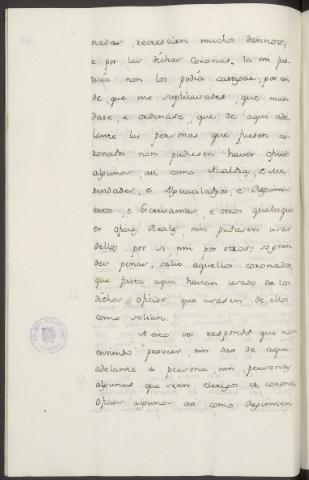 nadas, recrescien muchos dannos,
e por las dichas coronas, la mi jus
ticia non los podia castigar: por en
de que me suplicavades, que man
dase, e ordenase, que de aqui ade
lante las personas que fuesen co
ronados non pudiesen haver oficios
algunos, asi como Alcaldia, e Me
rindades, e Alguaciladgos, e Regimi
entos, e Escrivanias, e otros qualesqui
er oficios Reales, nin pudiesen usar
dellos por si nin por otros, so gran
des penas, salvo aquellos coronados,
que fasta aqui havian usado de los
dichos oficios que usasen de ellos
como solian.
A esto vos respondo que non
entiendo proveer, nin dar de aqui
adelante a persona, nin personas
algunas que sean clerigos de corona,
Oficios algunos asi como Regimien